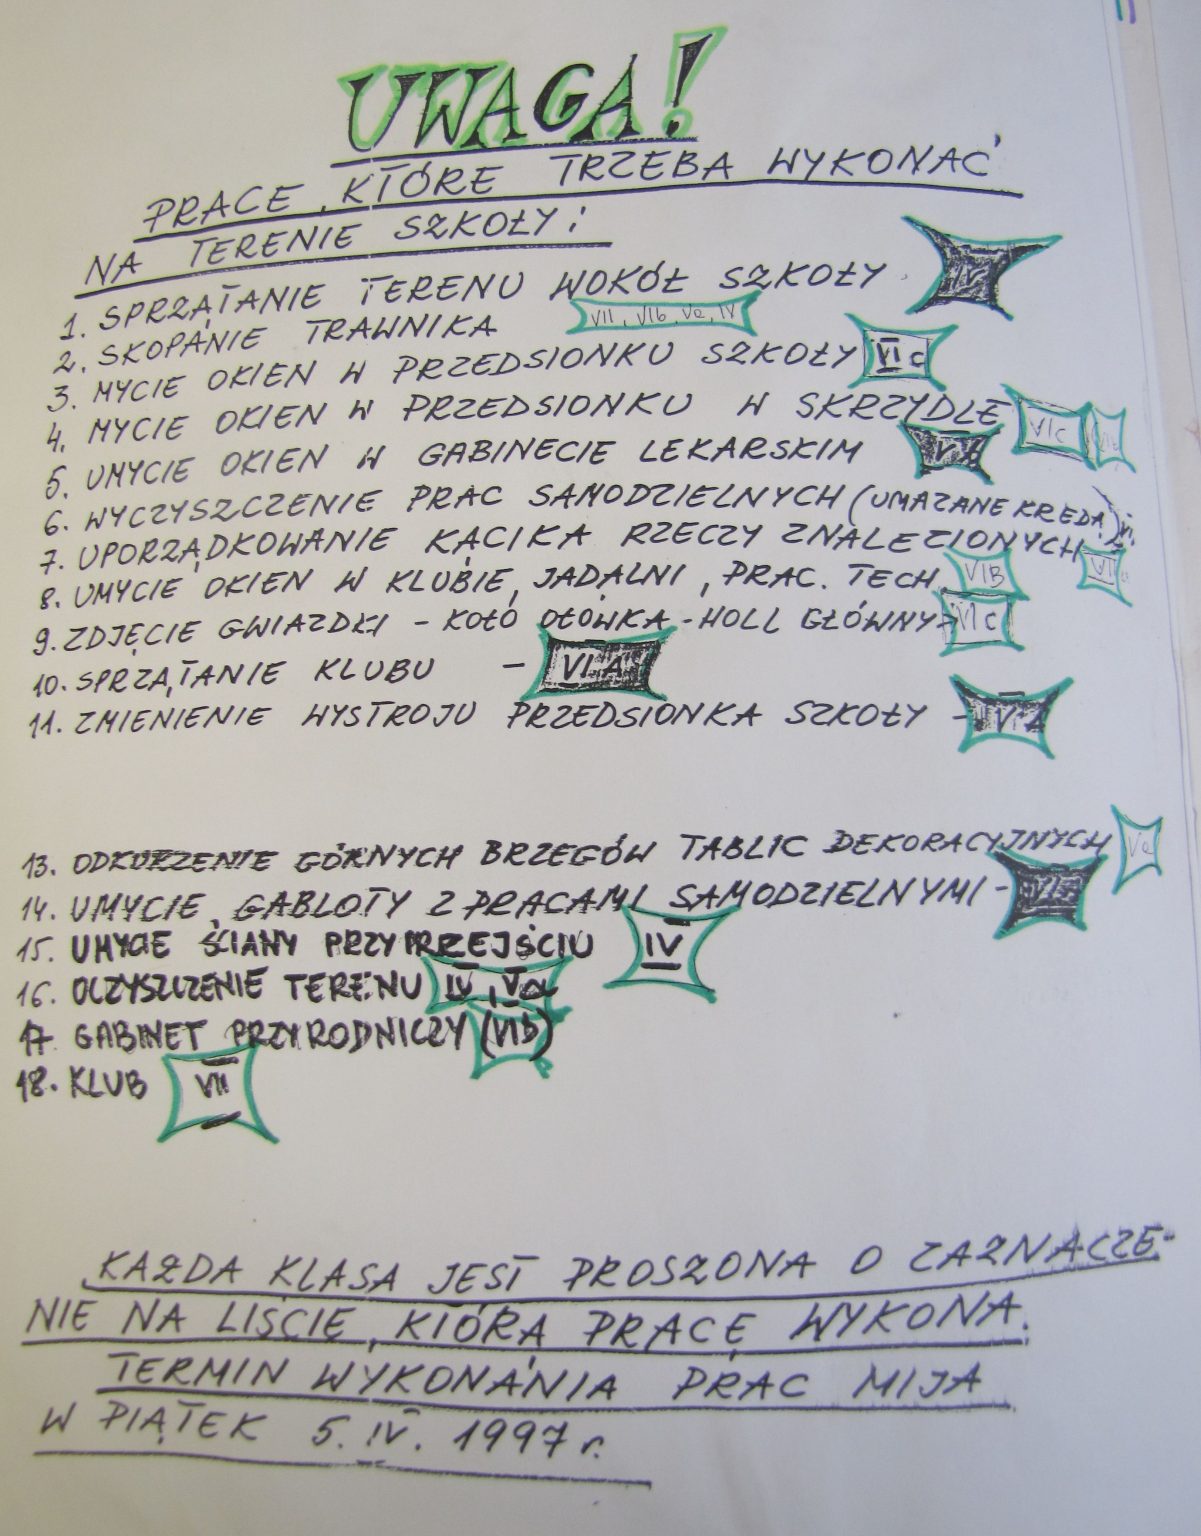 UWAGA!
PRACE, KTÓRE TRZEBA WYKONAĆ
NA TERENIE SZKOŁY:
1. SPRZĄTANIE TERENU WOKÓŁ SZKOŁY IV
2. SKOPANIE TRAWNIKA VII, VIb, Va, IV
3. MYCIE OKIEN W PRZEDSIONKU SZKOŁY VI c
4. MYCIE OKIEN W PRZEDSIONKU W SKRZYDLE VIc
5. UMYCIE OKIEN W GABINECIE LEKARSKIM
6. WYCZYSZCZENIE PRAC SAMODZIELNYCH (UMAZANE KREDĄ)
7. UPORZĄDKOWANIE KĄCIKA RZECZY ZNALEZIONYCH
8. UMYCIE OKIEN W KLUBIE, JADALNI, PRAC. TECH. VIB
9. ZDJĘCIE GWIAZDKI - KOŁO OŁÓWKA - HOLL GŁÓWNY VIc
10. SPRZĄTANIE KLUBU - VI A
11. ZMIENIENIE WYSTROJU PRZEDSIONKA SZKOŁY - VI A
13. ODKURZENIE GÓRNYCH BRZEGÓW TABLIC DEKORACYJNYCH Va
14. UMYCIE GABLOTY Z PRACAMI SAMODZIELNYMI -
15. UMYCIE ŚCIANY PRZY PRZEJŚCIU IV
16. OCZYSZCZENIE TERENU IV, Va
17. GABINET PRZYRODNICZY (VIB)
18. KLUB VII
KAŻDA KLASA JEST PROSZONA O ZAZNACZE-
NIE NA LIŚCIE, KTÓRĄ PRACĘ WYKONA.
TERMIN WYKONANIA PRAC MIJA
W PIĄTEK 5. IV. 1997 r.